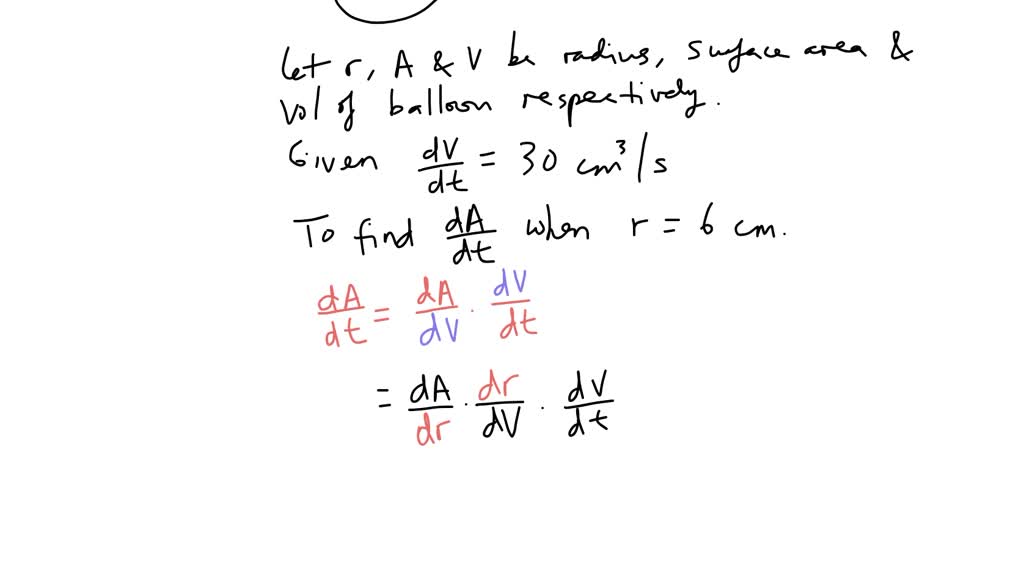 Let r, A & V be radius, surface area &
vol of balloon respectively.
Given dV/dt = 30 cm³/s
To find dA/dt when r = 6 cm.
dA/dt = dA/dV · dV/dt
= dA/dr · dr/dV · dV/dt